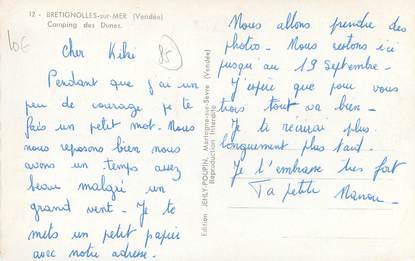 12 - BRETIGNOLLES-sur-MER (Vendée)
Camping des Dunes.
10€
85
Cher Kiki
Pendant que j'ai un
peu de courage je te
fais un petit mot. Nous
nous reposons bien nous
avons un temps assez
beau malgré un
grand vent. Je te
mets un petit papier
avec notre adresse.
Edition JEHLY-POUPIN, Mortagne-sur-Sèvre (Vendée)
Reproduction Interdite
Nous allons prendre des
photos. Nous restons ici
jusqu'au 19 Septembre.
J'espère que pour vous
trois tout va bien.
Je te récrirai plus
longuement plus tard.
Je t'embrasse très fort
Ta petite Manou.